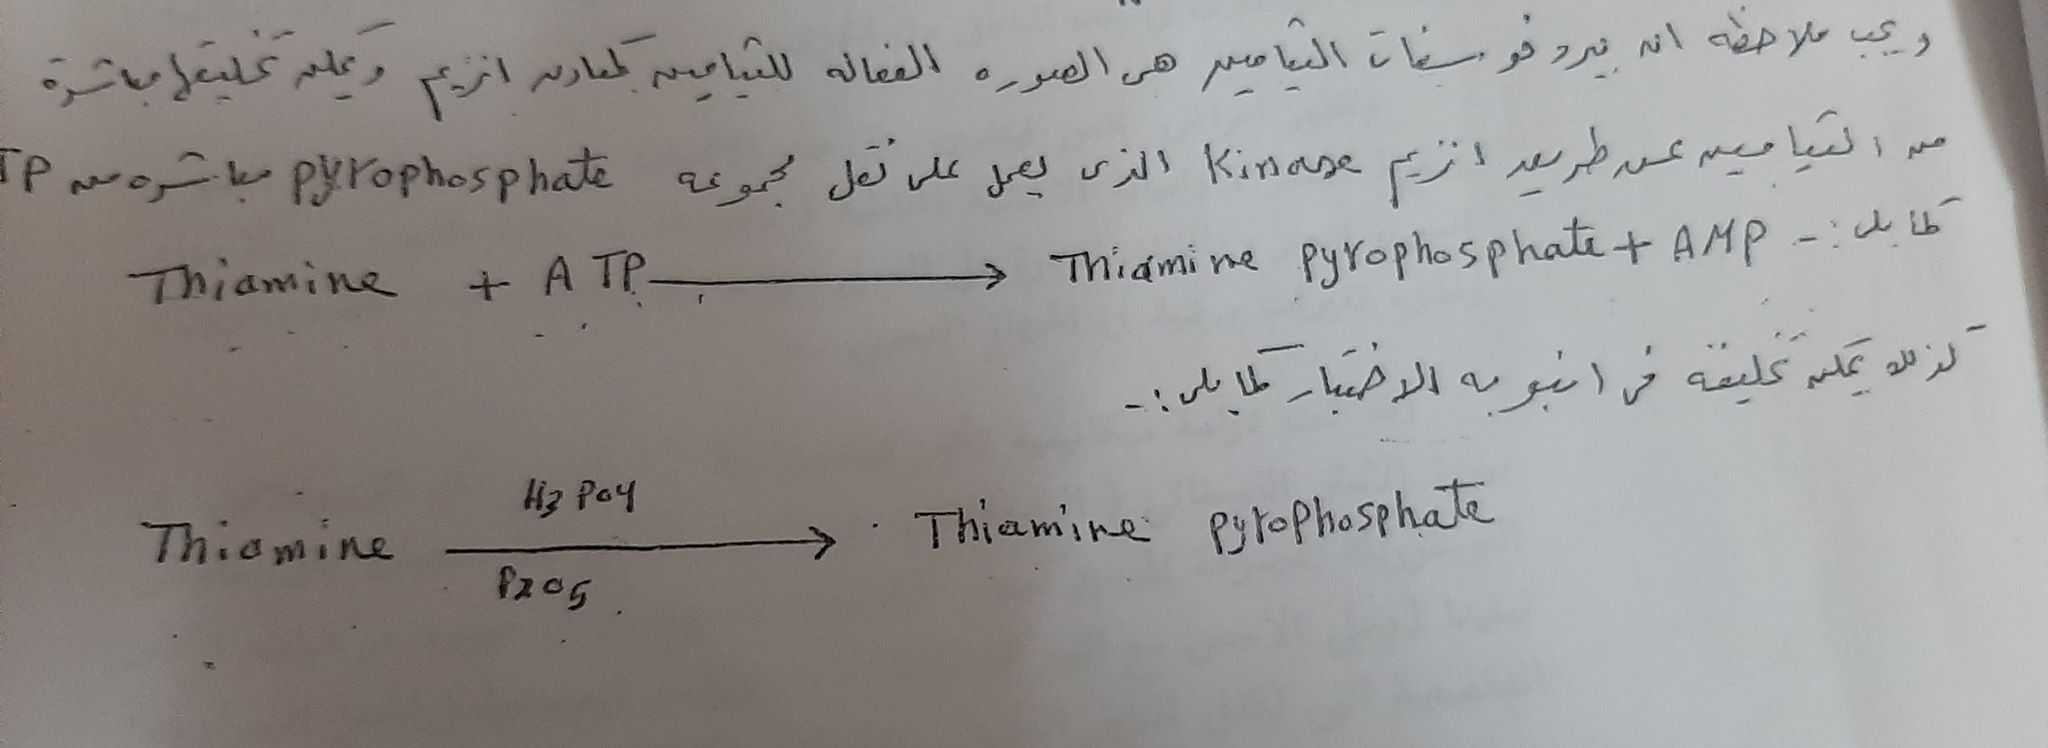 ويجب ملاحظه انه بيروفوسفات الثيامين هى الصوره الفعاله للثيامين كمادن انزيم ويمكن تخليقها مباشرة
من الثيامين عن طريق انزيم Kinase الذى يعمل على نقل مجموعه pyrophosphate مباشره من TP
كما يلى :-
Thiamine + ATP → Thiamine pyrophosphate + AMP
كذلك يمكن تخليقة فى انبوبه الاختبار كما يلى :-
H3PO4
Thiamine → Thiamine pyrophosphate
P2O5